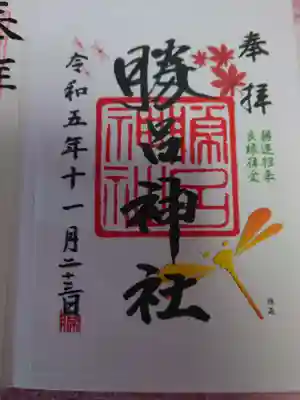 奉拝
勝運招来
勝呂神社
勝呂神社
令和五年十一月二十三日